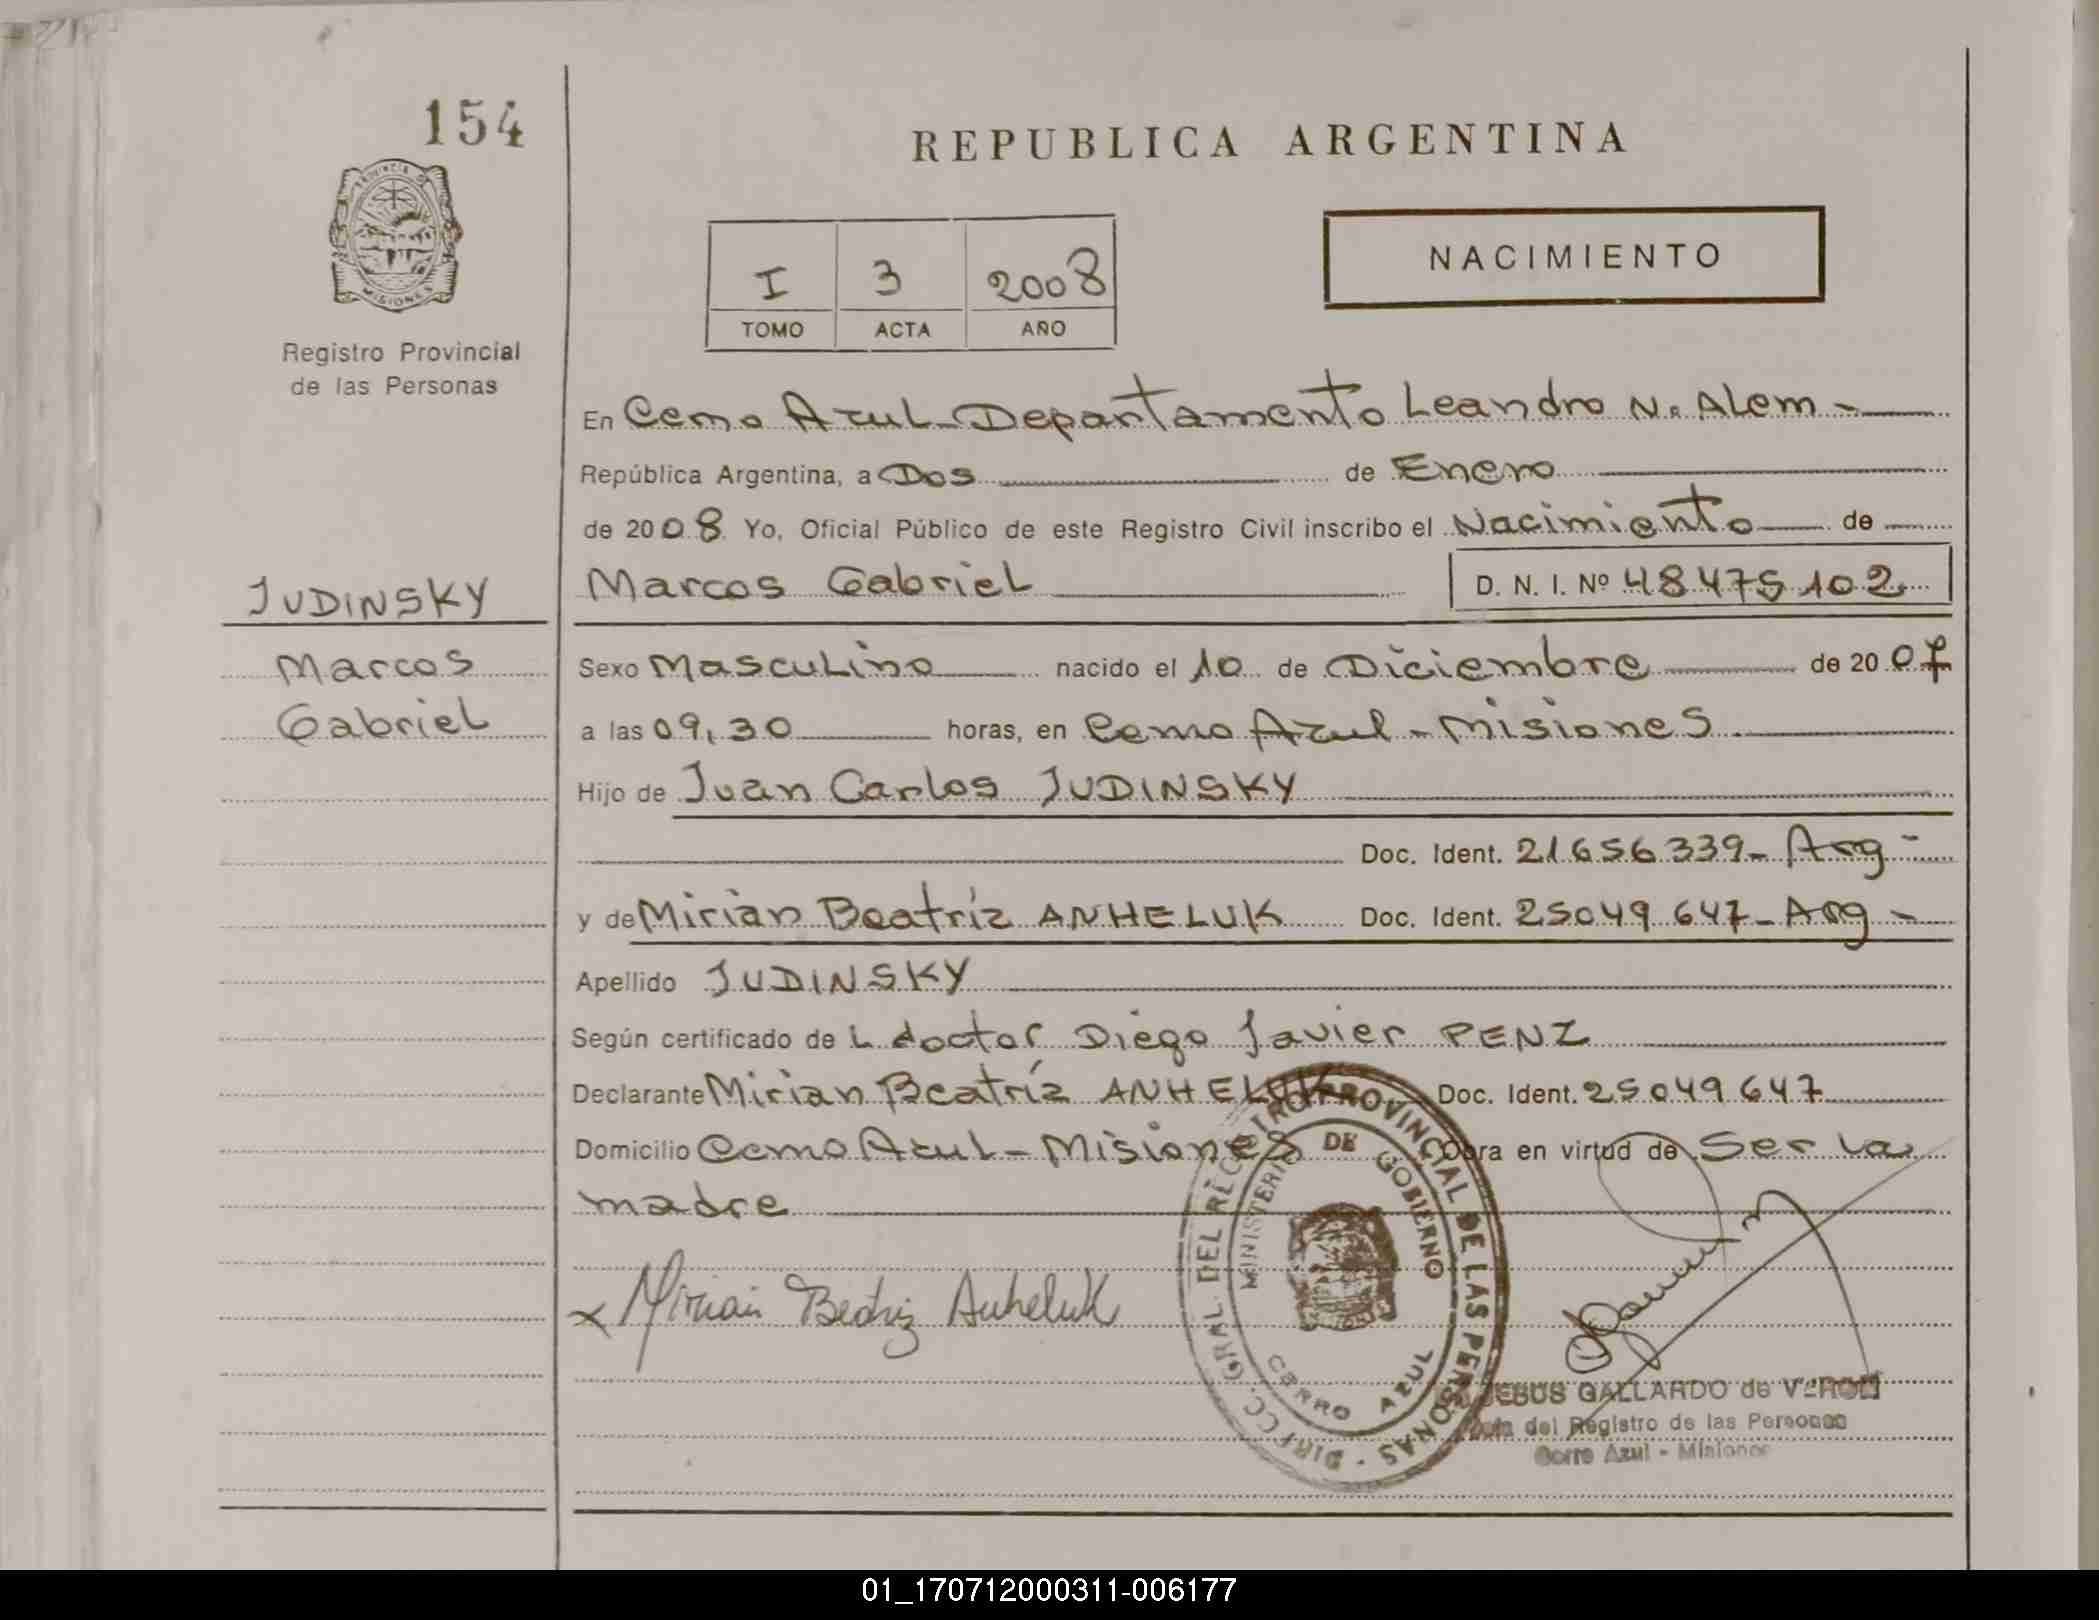 154
PROVINCIA DE
MISIONES
Registro Provincial
de las Personas
REPUBLICA ARGENTINA
I 3 2008
TOMO ACTA AÑO
NACIMIENTO
En Cerro Azul - Departamento Leandro N. Alem -
República Argentina, a Dos de Enero
de 2008 Yo, Oficial Público de este Registro Civil inscribo el Nacimiento de
Marcos Gabriel D. N. I. Nº 48.475.102
JUDINSKY
Marcos
Gabriel
Sexo Masculino nacido el 10 de Diciembre de 2007
a las 09,30 horas, en Cerro Azul - Misiones
Hijo de Juan Carlos JUDINSKY
Doc. Ident. 21.656.339 - Arg -
y de Mirian Beatríz ANHELUK Doc. Ident. 25.049.647 - Arg -
Apellido JUDINSKY
Según certificado de L doctor Diego Javier PENZ
Declarante Mirian Beatríz ANHELUK Doc. Ident. 25.049.647
Domicilio Cerro Azul - Misiones Obra en virtud de Ser la
madre
x Mirian Beatriz Anheluk
DIRECC. GRAL. DEL REGISTRO PROVINCIAL DE LAS PERSONAS -
MINISTERIO DE GOBIERNO
CERRO AZUL
JESUS GALLARDO de VERON
del Registro de las Personas
Cerro Azul - Misiones
01_170712000311-006177